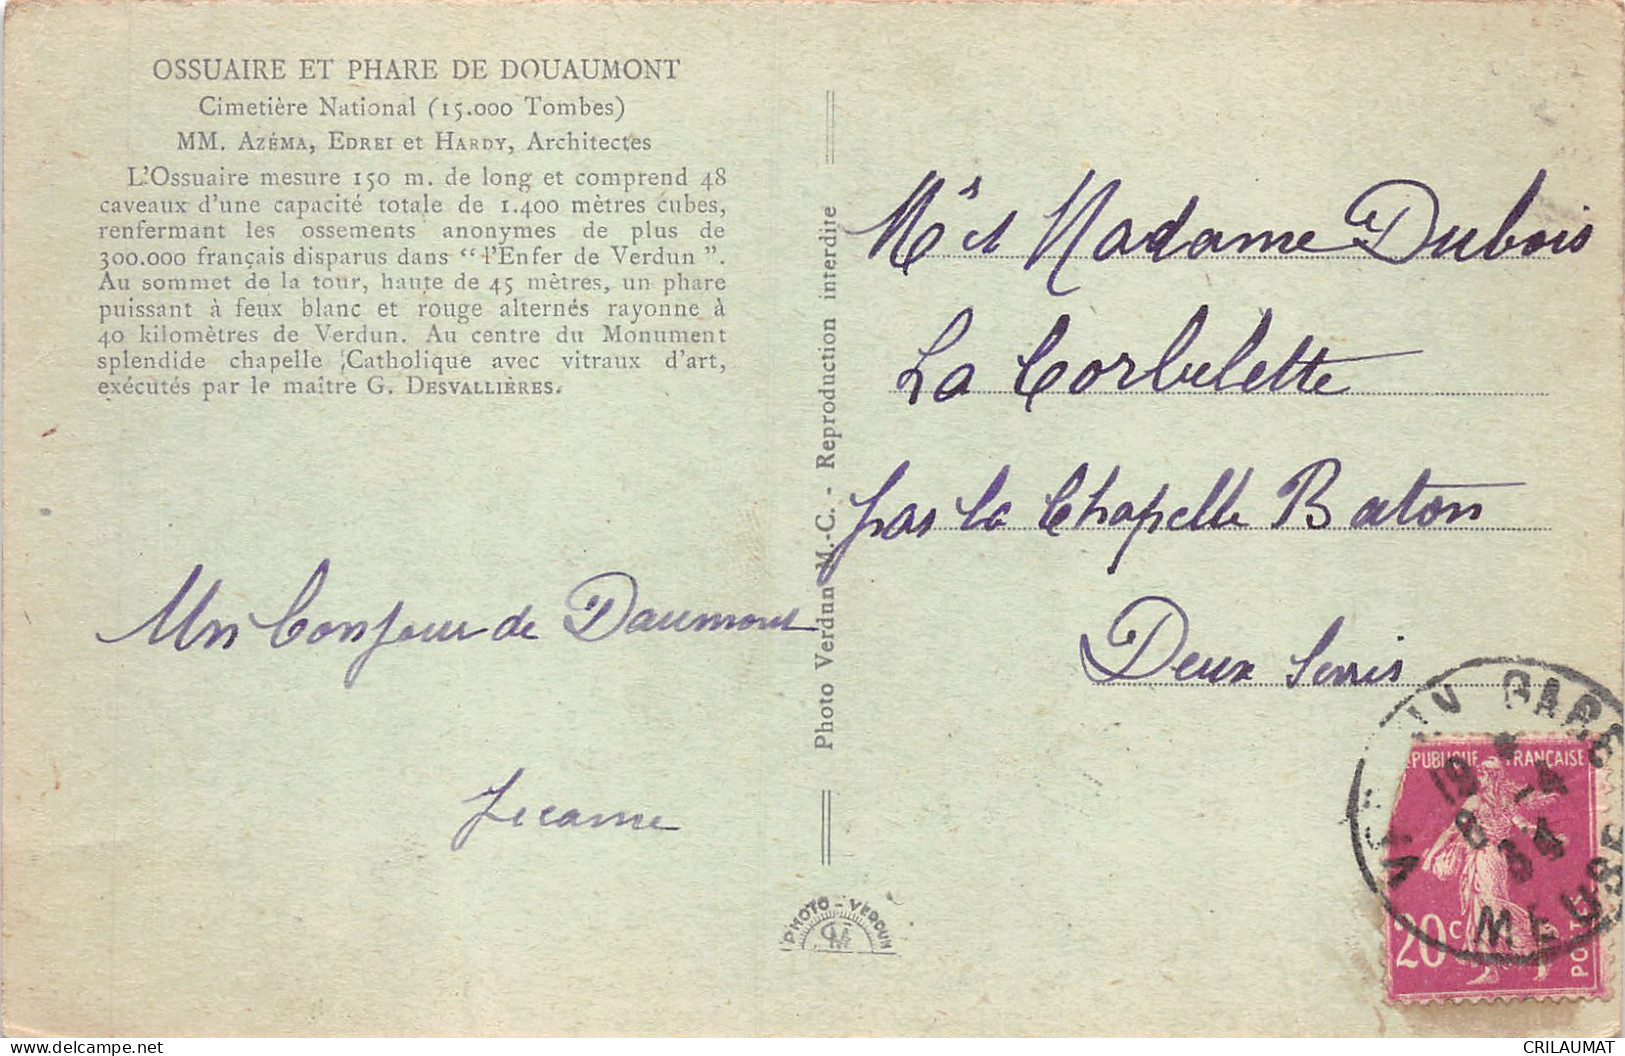 OSSUAIRE ET PHARE DE DOUAUMONT
Cimetière National (15.000 Tombes)
MM. AZÉMA, EDREI et HARDY, Architectes
L'Ossuaire mesure 150 m. de long et comprend 48
caveaux d'une capacité totale de 1.400 mètres cubes,
renfermant les ossements anonymes de plus de
300.000 français disparus dans “ l'Enfer de Verdun ”.
Au sommet de la tour, haute de 45 mètres, un phare
puissant à feux blanc et rouge alternés rayonne à
40 kilomètres de Verdun. Au centre du Monument
splendide chapelle Catholique avec vitraux d'art,
exécutés par le maître G. DESVALLIÈRES.
Un Bonjour de Daumont
Photo Verdun M.-C. - Reproduction interdite
PHOTO-VERDUN
Mr et Madame Dubois
La Corbelette
par la Chapelle Baton
Deux Sevris
GARE
19
8 -4
34
MEUSE
RÉPUBLIQUE FRANÇAISE
20c
POSTES
delcampe.net
CRILAUMAT